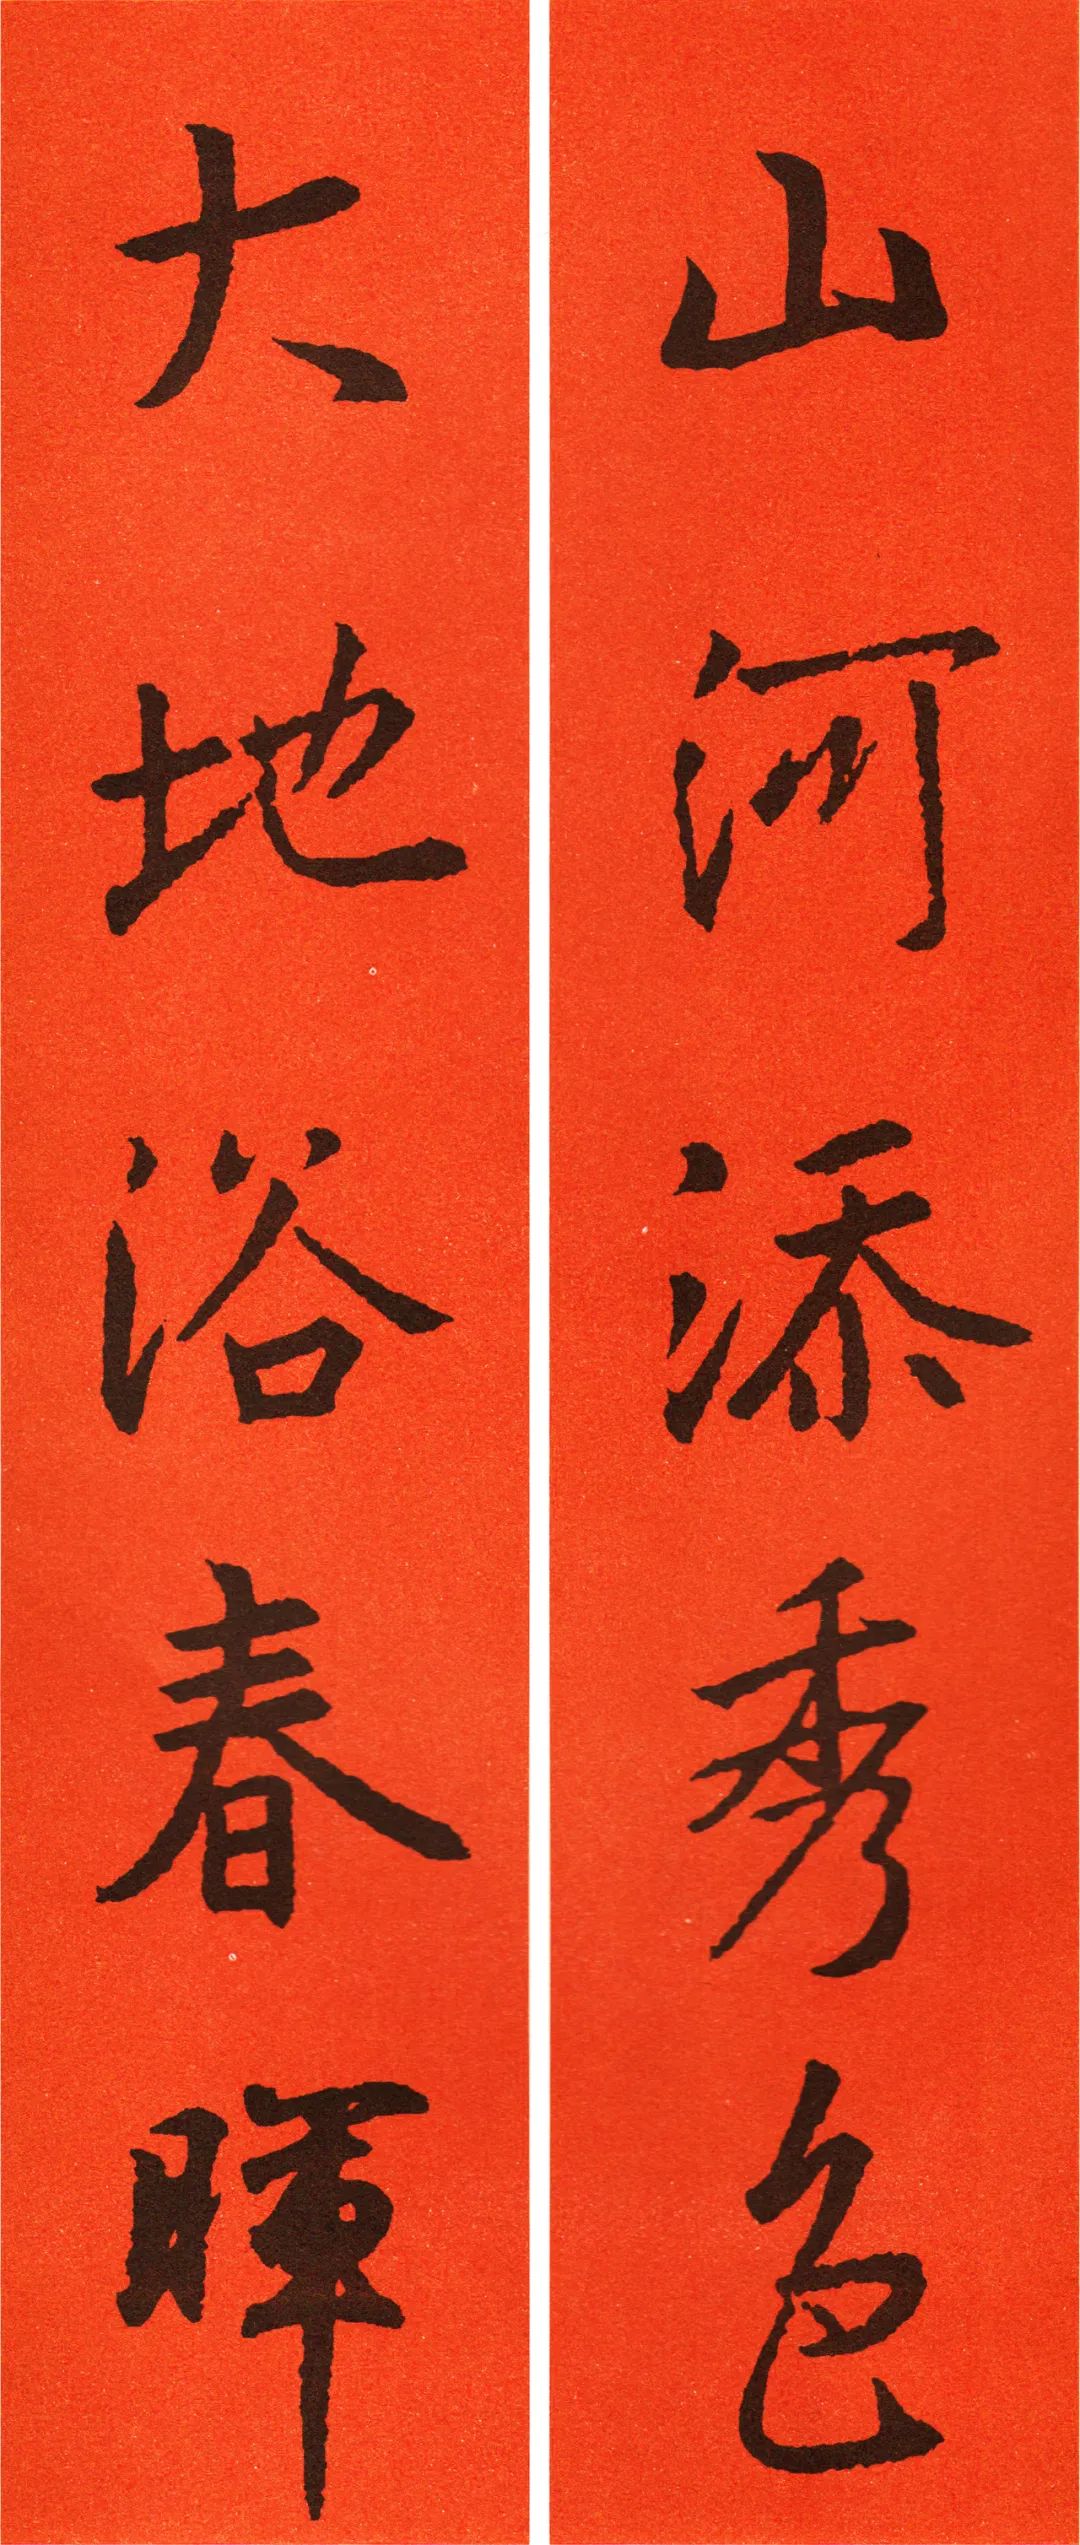 山河添秀色
大地浴春暉